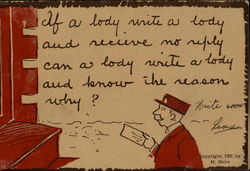 If a body write a body
and recieve no reply
can a body write a body
and know the reason
why?
Write soon
Copyright, 1907, by